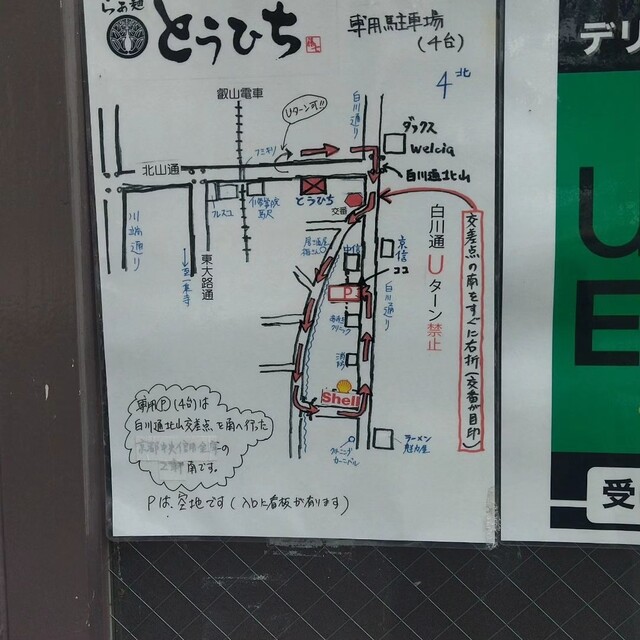 らぁ麺
とうひち
専用駐車場
(4台)
北
叡山電車
Uターン可!!
白川通り
ダックス
welcia
フミキリ
北山通
白川通北山
フレスコ
修学院
駅
とうひち
交番
川端通り
東大路通
居酒屋
中信
京信
ココ
P
白川通り
白川通Uターン禁止
交差点の南をすぐに右折(交番が目印)
消防
Shell
ラーメン
魁力屋
クリーニング
カーニバル
専用P(4台)は
白川通北山交差点を南へ行った
の
2軒南です。
Pは、空地です(入口に看板が有ります)
デリ
U
E
受